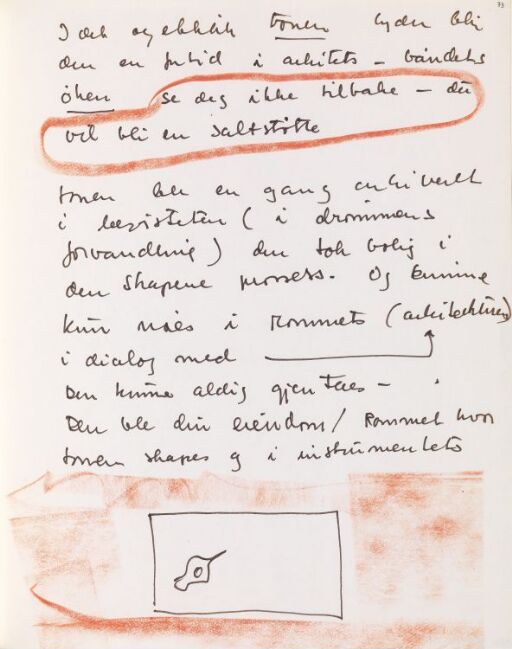 73
I det øyeblikk tonen lyder blir
den en fortid i arkivets – båndets
ørken se deg ikke tilbake – du
vil bli en saltstøtte
tonen ble en gang arkivert
i bevisstheten ( i drømmens
forvandling ) den tok bolig i
den skapene prosess. Og kunne
kun nåes i Rommets (arkitekturen)
i dialog med
Den kunne aldig gjentaes –
Den ble din eiendom / Rommet hvor
tonen skapes og i instrumentets